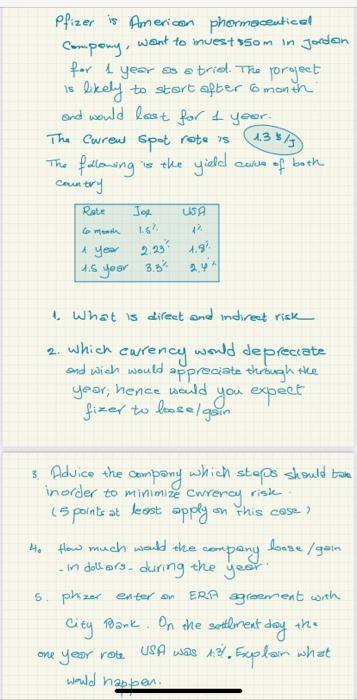 Pfizer is American pharmaceutical
Company, want to invest $50m in Jordan
for 1 year as a trial. The porject
is likely to start after 6 month
and would last for 1 year.
The Curew Spot rate is 1.3 $/J
The following is the yield curve of both
country
Rate Jor USA
6 month 1.5% 1%
1 year 2.23% 1.8%
1.5 year 3.3% 2.4%
1. What is direct and indirect risk
2. which currency would depreciate
and wich would appreciate through the
year; hence would you expect
fizer to loose/gain
3. Advice the company which steps should take
inorder to minimize currency risk.
(5 points at least apply on this case)
4. How much would the company loose/gain
- in dollars - during the year.
5. phizer enter an ERA agreement with
City Bank. On the setllment day the
one year rate USA was 1.3%. Explain what
would happen.